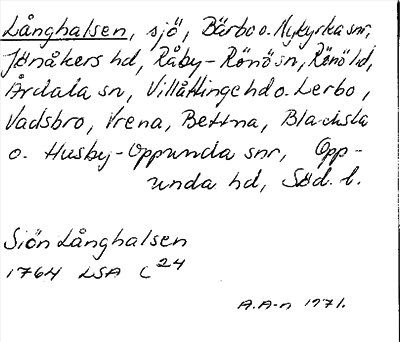 Långhalsen, sjö, Bärbo o. Nykyrka snr,
Jönåkers hd, Råby-Rönö sn, Rönö hd,
Årdala sn, Villåttinge hd o. Lerbo,
Vadsbro, Vrena, Bettna, Blacksta
o. Husby-Oppunda snr, Opp-
unda hd, Söd. l.
Siön Långhalsen
1764 LSA C 24
A.A-n 1971.